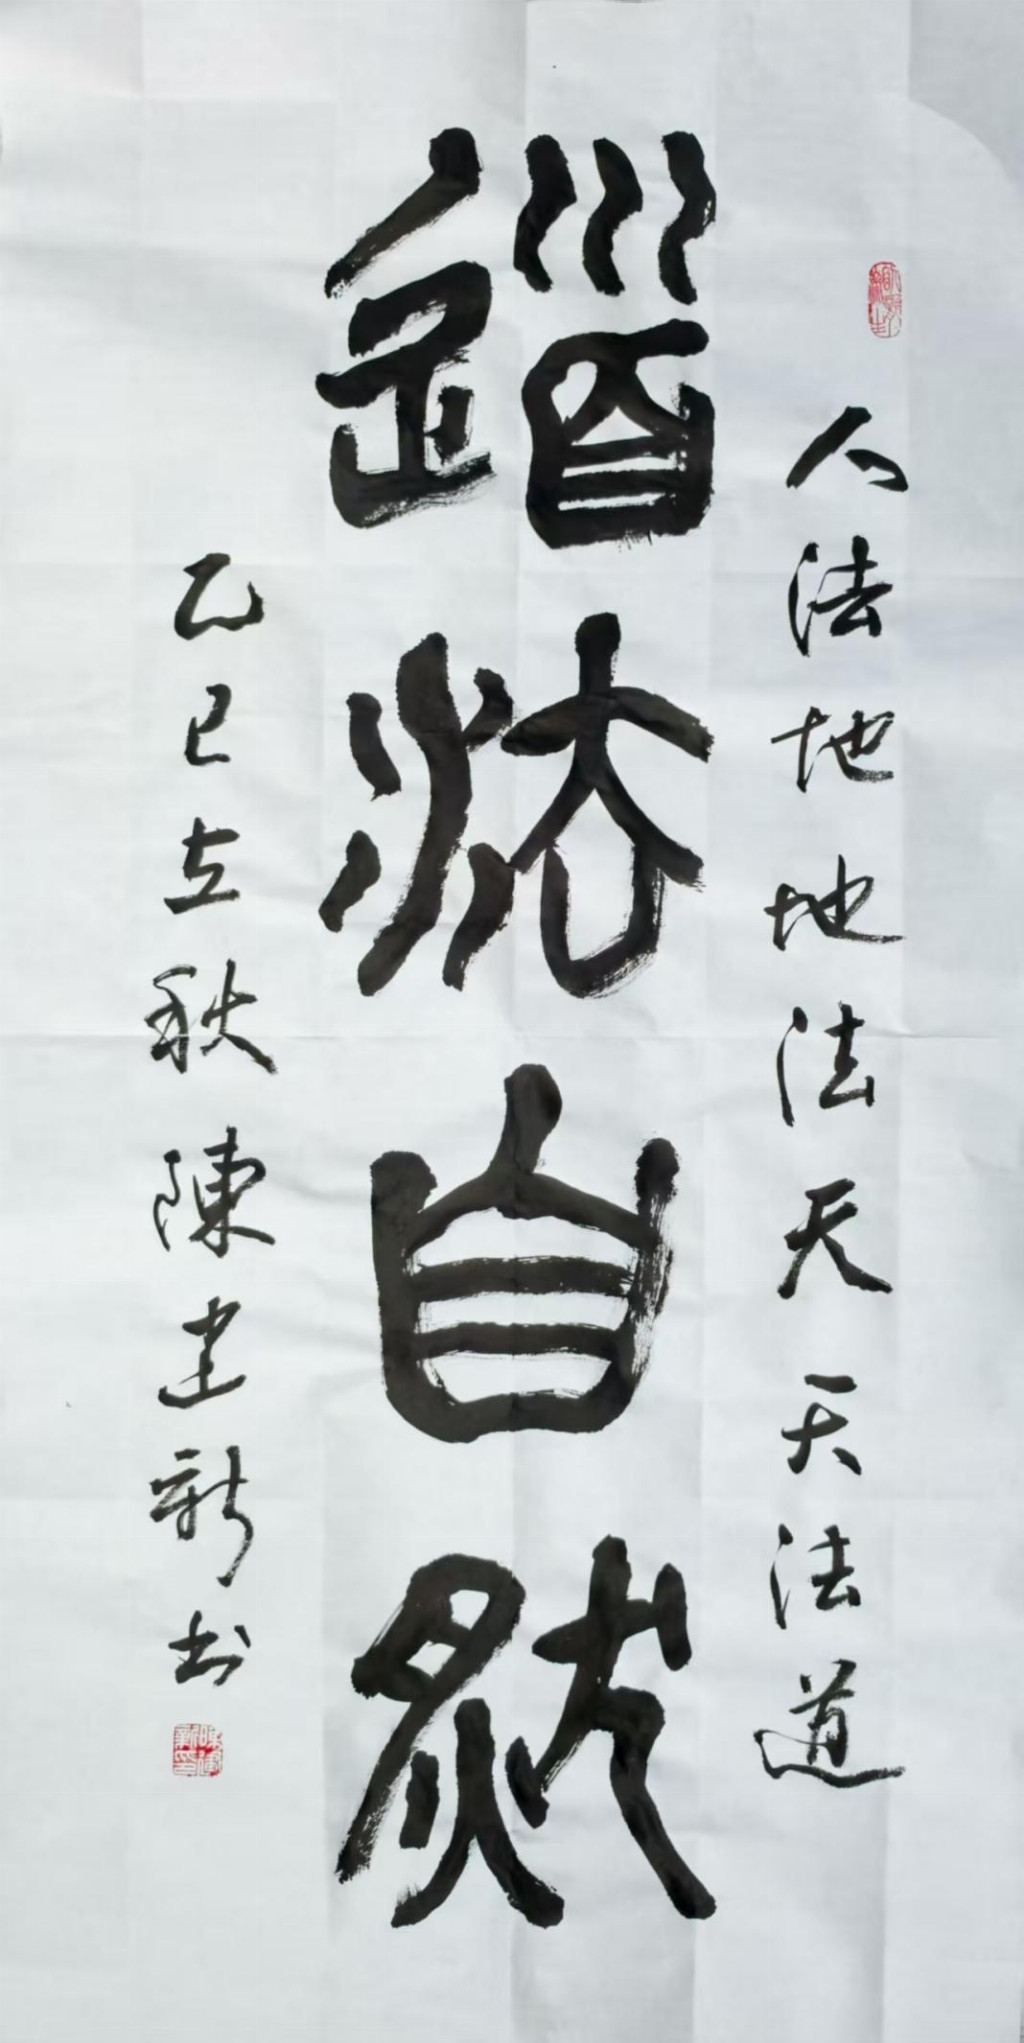 人法地地法天天法道
道法自然
乙巳立秋陳建新书
陳建新印